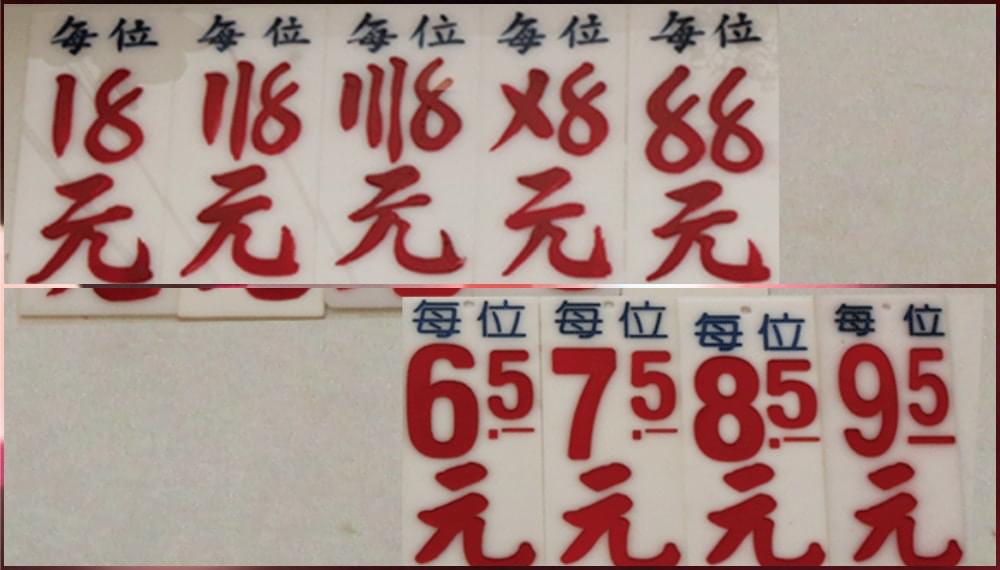 每位
18
元
每位
〢8
元
每位
〣8
元
每位
〤8
元
每位
〥8
元
每位
6.5
元
每位
7.5
元
每位
8.5
元
每位
95
元